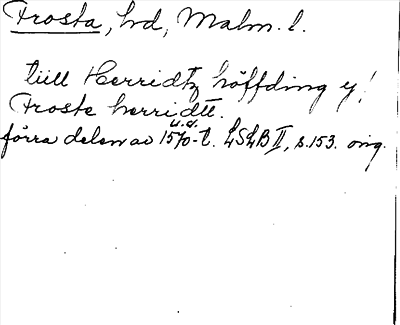 Frosta, hd, Malm. l.
tiill Herridtz höffding y!
Froste herridtt.
u.å.
förra delen av 1570-t. LSLB II, s. 153. orig.